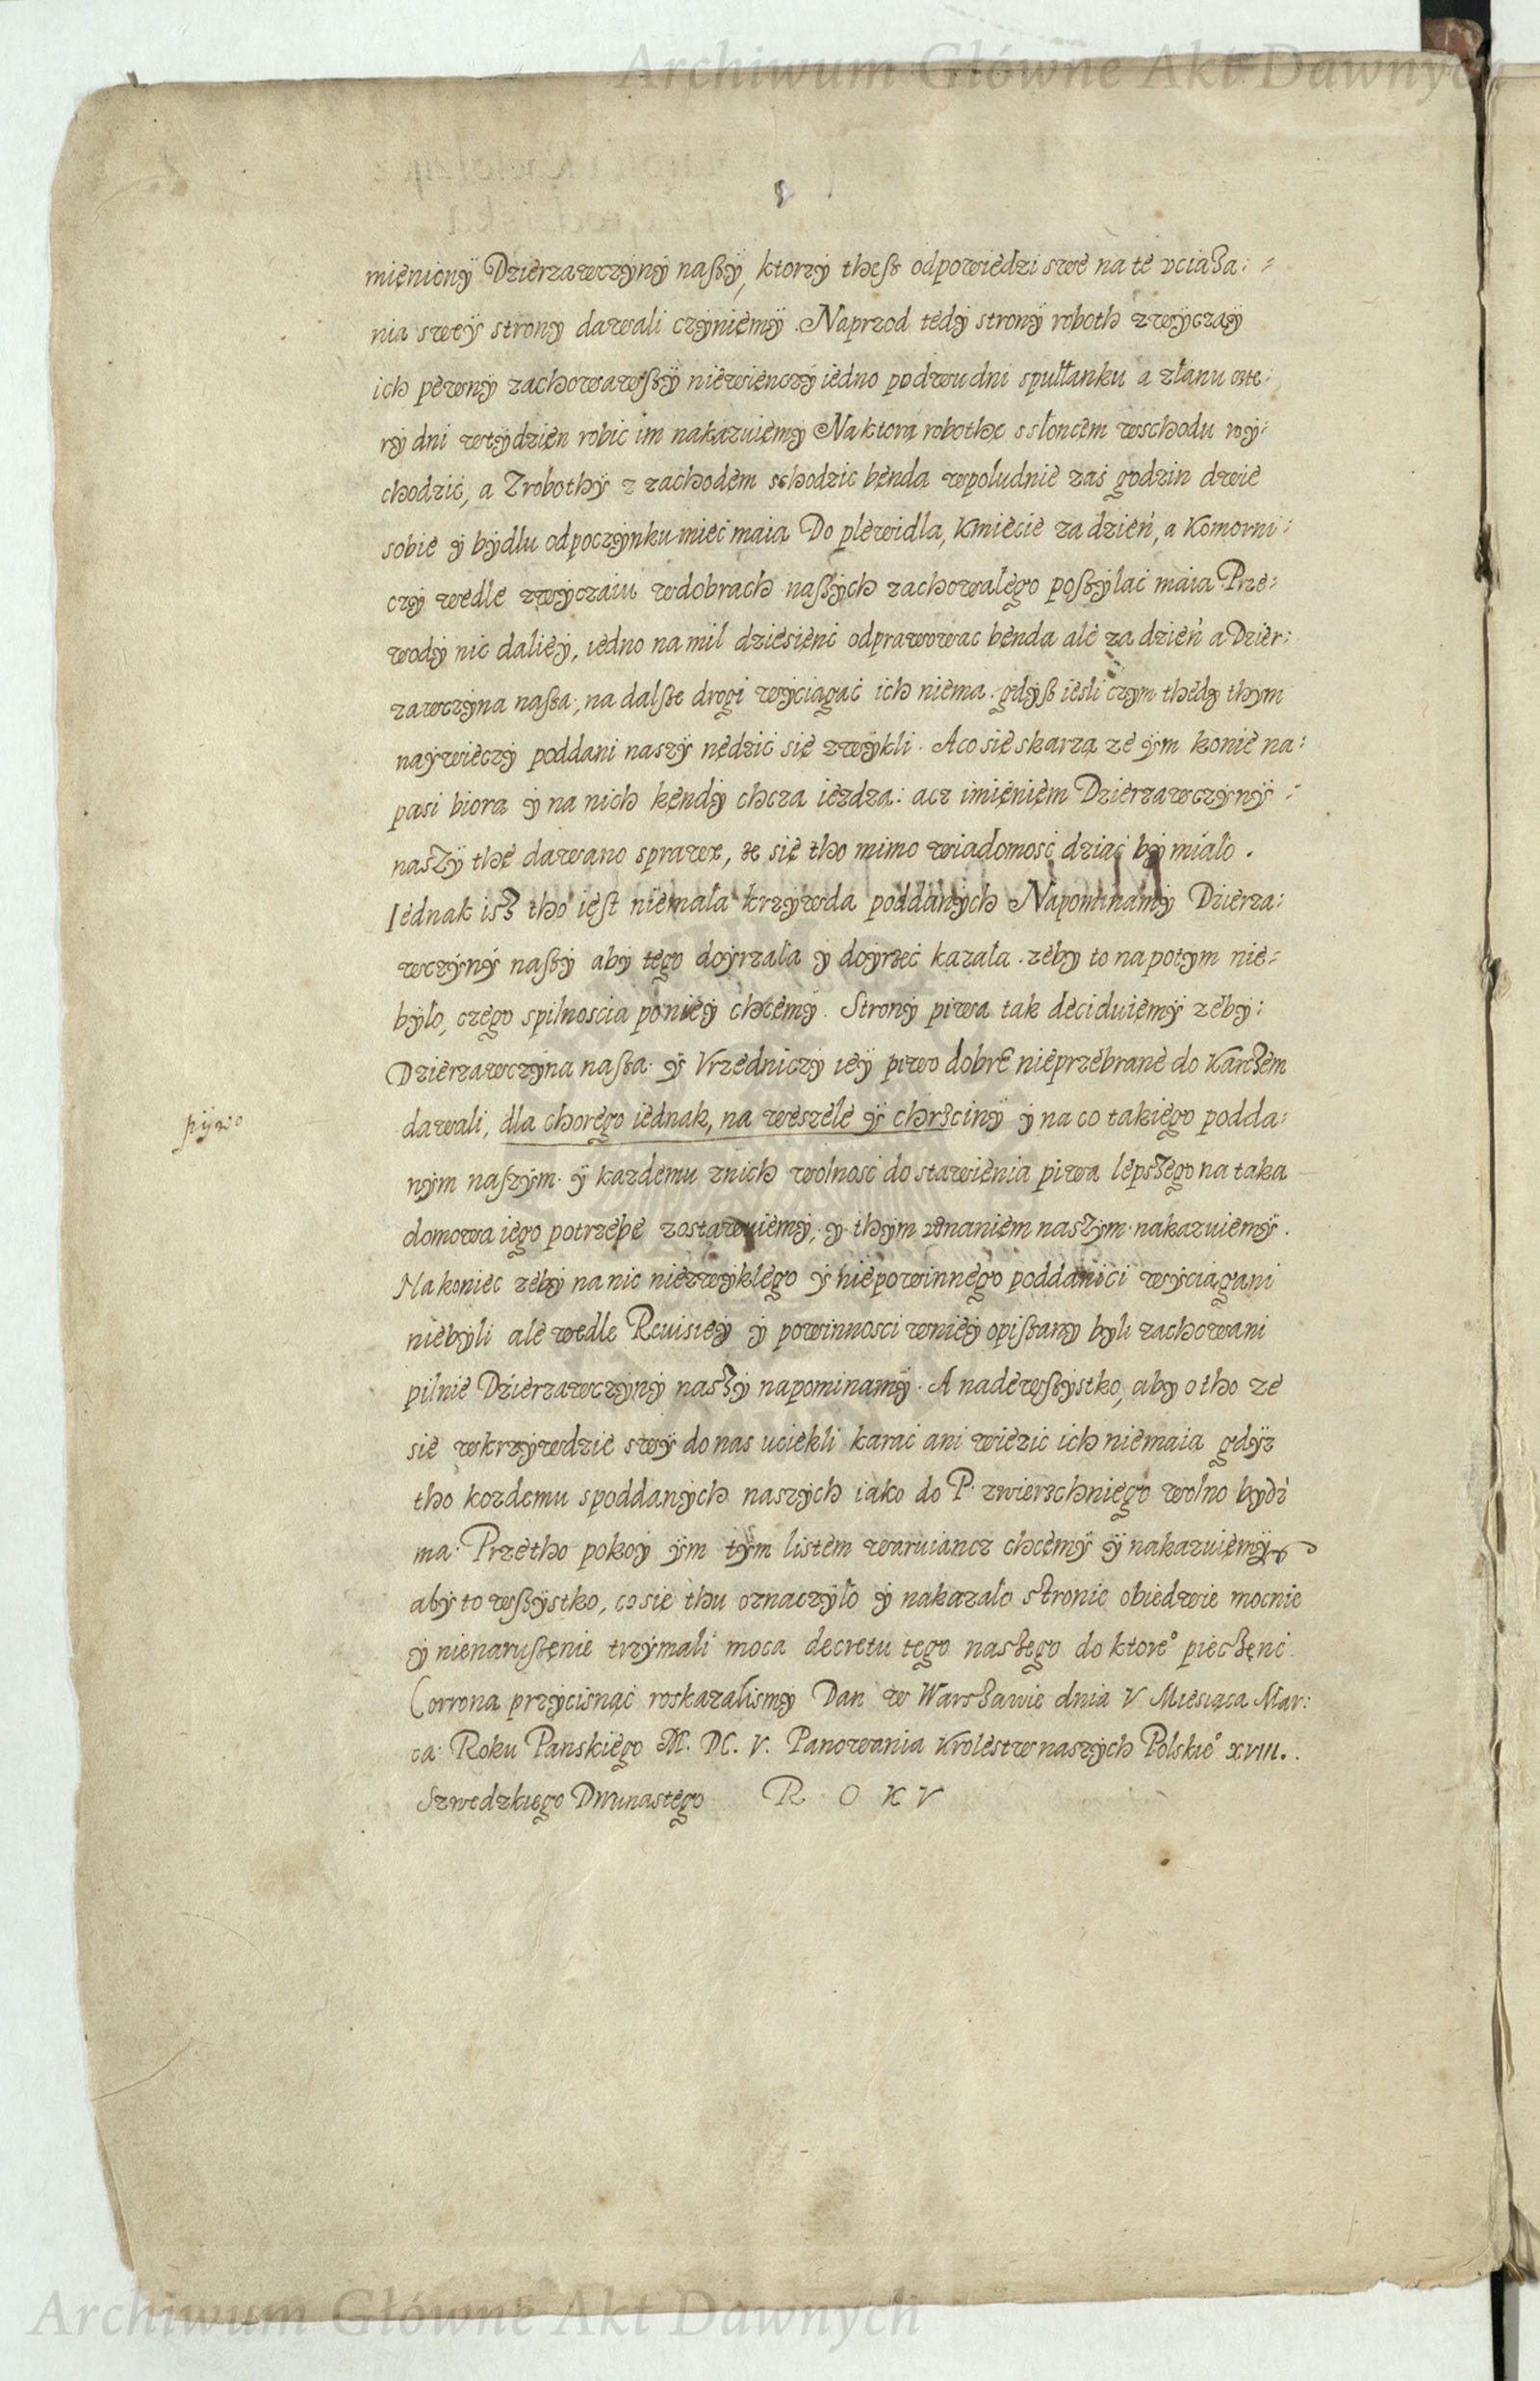 Archiwum Główne Akt Dawnych
mienionÿ Dzierzawczÿnÿ naßÿ, ktorzÿ theß odpowiedzi swe na te vciąza:
nia sweÿ stronÿ dawali czÿniemÿ. Naprzod tedÿ stronÿ roboth zwÿczaÿ
ich pewnÿ zachowawßÿ niewienczÿ iedno podwu dni spułłanku a złanu czte:
rÿ dni wtÿdzien robic im nakazuiemÿ Naktora robothę s słoncem wschodu wÿ:
chodzić, a Zrobothÿ z zachodem schodzic bęnda wpoludnie zaś godzin dwie
sobie ÿ bÿdłu odpoczÿnku mieć maią Do plewidla, Kmiecie za dzień, a Komorni:
czÿ wedle zwÿczaiu wdobrach naßÿch zachowałego poßÿlać maia Prze:
wodÿ nic daliey, iedno na mil dziesienć odprawowac bęnda ale za dzień a Dzier:
zawczÿna naßa, na dalße drogi wÿciagać ich niema. gdÿß iesli czÿm thedÿ thÿm
naÿwieczÿ poddani naszÿ nędzić się zwÿkli. Aco sie skarza ze ÿm konie na:
pasi biora ÿ na nich kendÿ chcza iezdza: acz imieniem Dzierzawczÿnÿ
naszÿ thę dawano sprawę, że się tho mimo wiadomość dziać bÿ miało.
Iednak isz tho iest niemała krzÿwda poddanÿch Napominamÿ Dzierza:
wczÿnÿ naßÿ abÿ tego doÿrzała ÿ doÿrzeć kazała. zebÿ to na potÿm nie:
bÿło, czego spilnoscia poniey chcemÿ. Stronÿ piwa tak deciduiemÿ zebÿ:
Dzierzawczÿna naßa ÿ Vrzedniczÿ ieÿ piwo dobre nieprzebrane do Karczem
pÿwo
dawali, dla chorego iednak, na weszele ÿ chrzcinÿ ÿ na co takiego podda:
nÿm naszÿm ÿ kazdemu znich wolność do stawienia piwa lepszego na taka
domowa iego potrzebe zostawuiemÿ, ÿ thÿm uznaniem naszÿm nakazuiemÿ.
Nakoniec zebÿ na nic niezwÿklego ÿ niepowinnego poddani ci wÿciągani
niebÿli ale wedle Reuisieÿ ÿ powinnosci wnieÿ opißanÿ bÿli zachowani
pilnie Dzierzawczÿnÿ naszÿ napominamÿ. A nadewßÿstko, abÿ o tho ze
sie wkrzÿwdzie swÿ do nas uciekli karać ani wiezić ich niemaia gdÿz
tho kozdemu spoddanÿch naszÿch iako do P. zwierzchniego wolno bÿdź
ma. Przetho pokoÿ ÿm tÿm listem waruiancz chcemÿ ÿ nakazuiemÿ
abÿ to wßÿstko, co sie thu oznaczÿło ÿ nakazało stronie obiedwie mocnie
ÿ nienarußenie trzÿmali moca decretu tego naszego do ktoreᵒ pieczęnć
Corrona przÿcisnąć roskazalismÿ Dan w Warszawie dnia V Miesiąca Mar:
ca Roku Panskiego M. DC. V. Panowania Krolestw naszÿch Polskieᵒ XVIII.
Szwedzkiego Dwunastego R O K V
Archiwum Główne Akt Dawnych